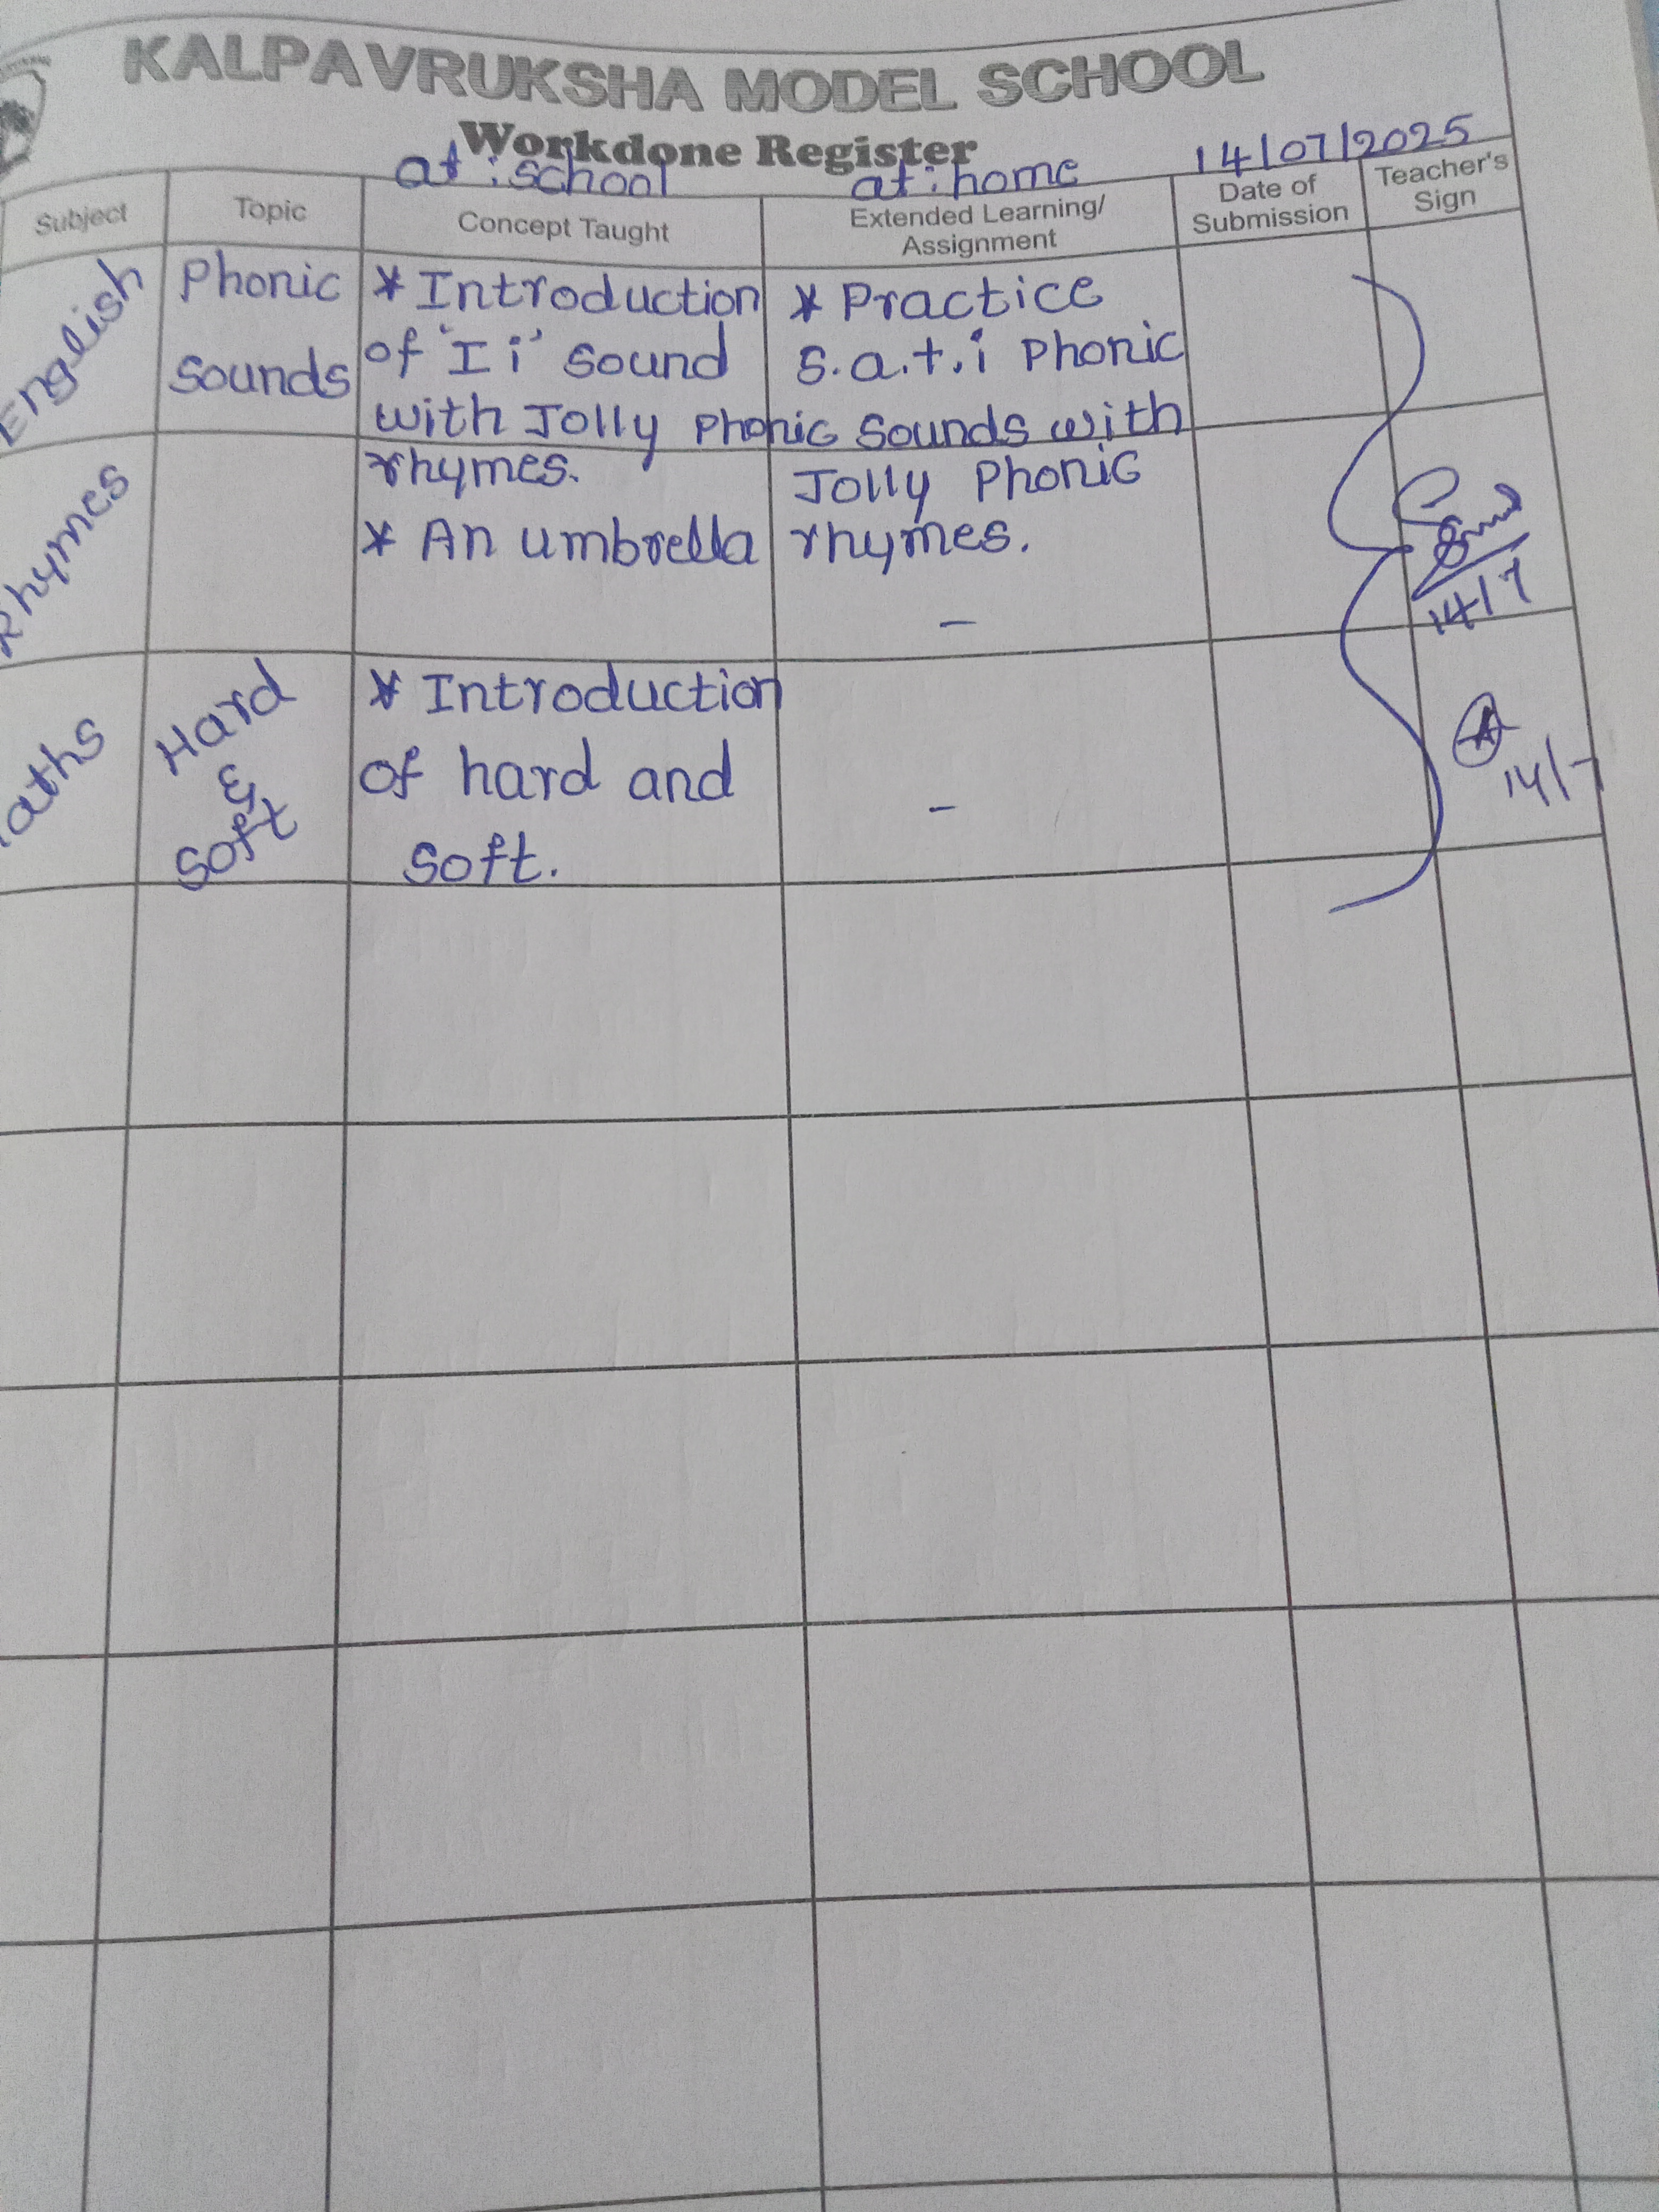 KALPAVRUKSHA MODEL SCHOOL
Workdone Register
at : school
at : home
14/07/2025
Subject
Topic
Concept Taught
Extended Learning/
Assignment
Date of
Submission
Teacher's
Sign
English
Phonic
Sounds
* Introduction
of 'I i' sound
with Jolly Phonic
rhymes.
* Practice
s.a.t.i Phonic
Sounds with
Jolly Phonic
rhymes.
Rhymes
* An umbrella
-
14/7
aths
Hard
&
Soft
* Introduction
of hard and
soft.
-
14/7